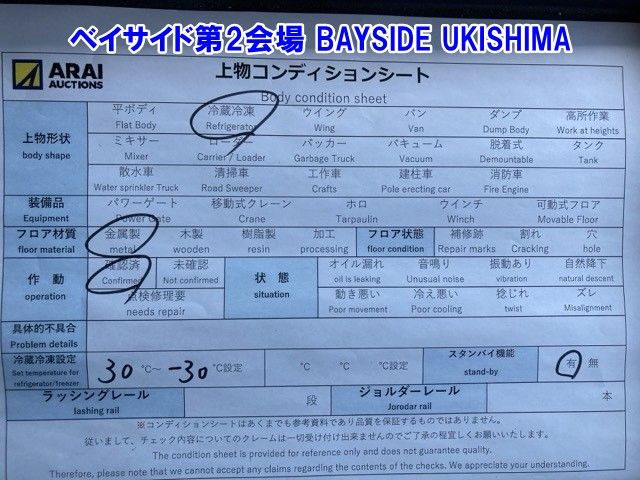 ベイサイド第2会場 BAYSIDE UKISHIMA
ARAI
AUCTIONS
上物コンディションシート
Body condition sheet
上物形状
body shape
平ボディ 冷蔵冷凍 ウイング バン ダンプ 高所作業
Flat Body Refrigerator Wing Van Dump Body Work at heights
ミキサー ローダー パッカー バキューム 脱着式 タンク
Mixer Carrier / Loader Garbage Truck Vacuum Demountable Tank
散水車 清掃車 工作車 建柱車 消防車
Water sprinkler Truck Road Sweeper Crafts Pole erecting car Fire Engine
装備品
Equipment
パワーゲート 移動式クレーン ホロ ウインチ 可動式フロア
Power Gate Crane Tarpaulin Winch Movable Floor
フロア材質
floor material
金属製 木製 樹脂製 加工
metal wooden resin processing
フロア状態
floor condition
補修跡 割れ 穴
Repair marks Cracking hole
作動
operation
確認済 未確認
Confirmed Not confirmed
点検修理要
needs repair
状態
situation
オイル漏れ 音鳴り 振動あり 自然降下
oil is leaking Unusual noise vibration natural descent
動き悪い 冷え悪い 捻じれ ズレ
Poor movement Poor cooling twist Misalignment
具体的不具合
Problem details
冷蔵冷凍設定
Set temperature for
refrigerator/freezer
30 ℃～ -30 ℃設定 ℃ ℃ ℃設定
スタンバイ機能
stand-by
有 無
ラッシングレール
lashing rail
段
ジョルダーレール
Jorodar rail
本
※コンディションシートはあくまでも参考資料であり品質を保証するものではありません。
従いまして、チェック内容についてのクレームは一切受け付け出来ませんのでご了承の程宜しくお願いいたします。
The condition sheet is provided for reference only and does not guarantee quality.
Therefore, please note that we cannot accept any claims regarding the contents of the checks. We appreciate your understanding.